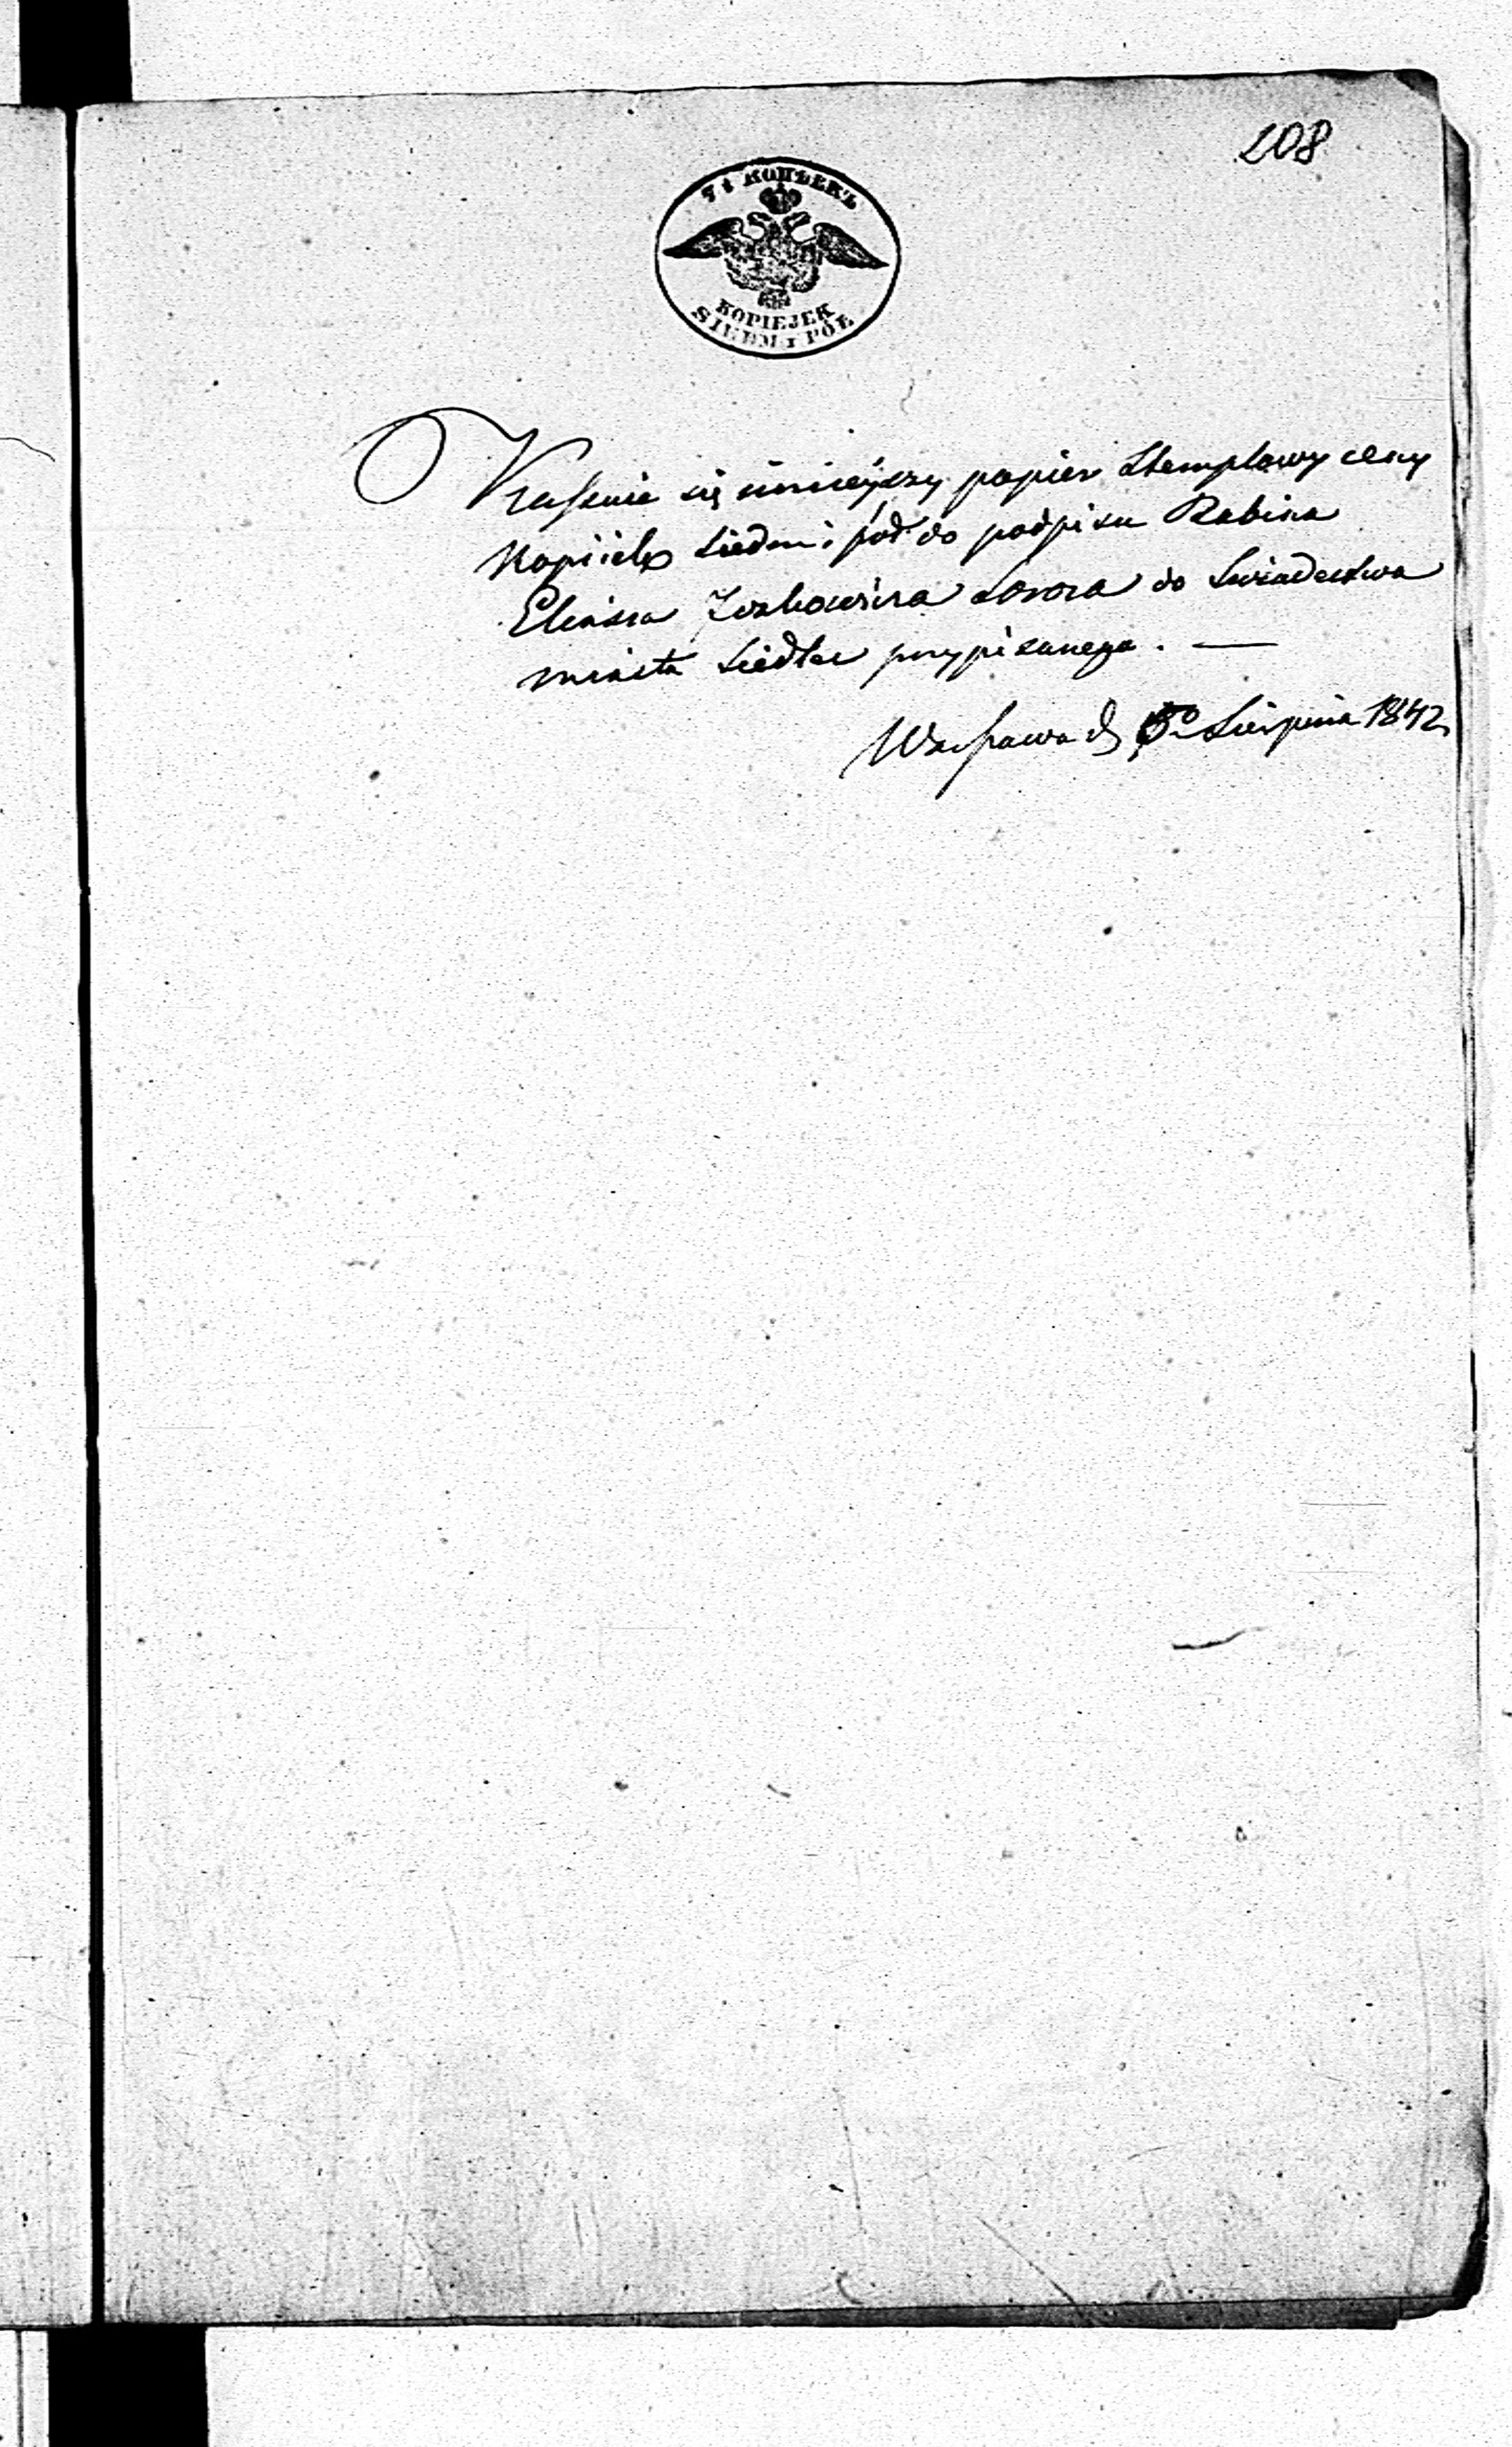 208
7½ КОПѢЕКЪ
KOPIEJEK
SIEDM i PÓŁ
Kassuie się ninieyszy papier Stemplowy ceny
Kopiiek Siedm i pół do podpisu Rabina
do Swiadectwa
miasta Siedlec przypisanego. —
Warszawa d Sierpnia 1842